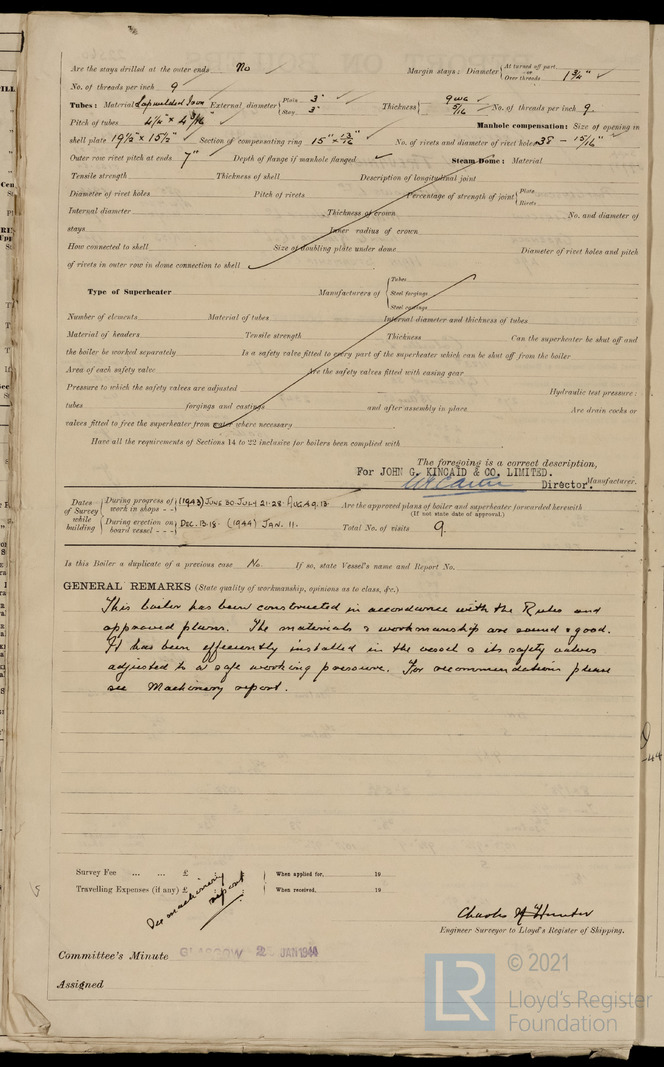 Are the stays drilled at the outer ends No Margin stays: Diameter { At turned off part, or Over threads 1 3/4"
No. of threads per inch 9
Tubes: Material Lapwelded Iron External diameter { Plain 3" Stay 3" Thickness { 9 WG 5/16 No. of threads per inch 9.
Pitch of tubes 4 1/4" x 4 3/16" Manhole compensation: Size of opening in
shell plate 19 1/2" x 15 1/2" Section of compensating ring 15" x 13/16 No. of rivets and diameter of rivet holes 38 - 15/16"
Outer row rivet pitch at ends 7" Depth of flange if manhole flanged Steam Dome: Material
Tensile strength Thickness of shell Description of longitudinal joint
Diameter of rivet holes Pitch of rivets Percentage of strength of joint { Plate Rivets
Internal diameter Thickness of crown No. and diameter of
stays Inner radius of crown
How connected to shell Size of doubling plate under dome Diameter of rivet holes and pitch
of rivets in outer row in dome connection to shell
Type of Superheater Manufacturers of { Tubes Steel forgings Steel castings
Number of elements Material of tubes Internal diameter and thickness of tubes
Material of headers Tensile strength Thickness Can the superheater be shut off and
the boiler be worked separately Is a safety valve fitted to every part of the superheater which can be shut off from the boiler
Area of each safety valve Are the safety valves fitted with easing gear
Pressure to which the safety valves are adjusted Hydraulic test pressure:
tubes forgings and castings and after assembly in place Are drain cocks or
valves fitted to free the superheater from water where necessary
Have all the requirements of Sections 14 to 22 inclusive for boilers been complied with
The foregoing is a correct description,
For JOHN G. KINCAID & CO. LIMITED.
Director. Manufacturer.
Dates of Survey while building { During progress of work in shops - - (1943) JUNE 30. JULY 21. 28. AUG. 4. 9. 13. Are the approved plans of boiler and superheater forwarded herewith
(If not state date of approval.)
During erection on board vessel - - - DEC. 13. 18. (1944) JAN. 11. Total No. of visits 9.
Is this Boiler a duplicate of a previous case No. If so, state Vessel's name and Report No.
GENERAL REMARKS (State quality of workmanship, opinions as to class, &c.)
This boiler has been constructed in accordance with the Rules and
approved plans. The materials & workmanship are sound & good.
It has been efficiently installed in the vessel & its safety valves
adjusted to a safe working pressure. For recommendation please
see Machinery report.
Survey Fee ... ... £ When applied for, 19
Travelling Expenses (if any) £ When received, 19
See machinery report
Charles H Hunter
Engineer Surveyor to Lloyd's Register of Shipping.
Committee's Minute GLASGOW 25 JAN 1944
Assigned
LR © 2021
Lloyd's Register
Foundation